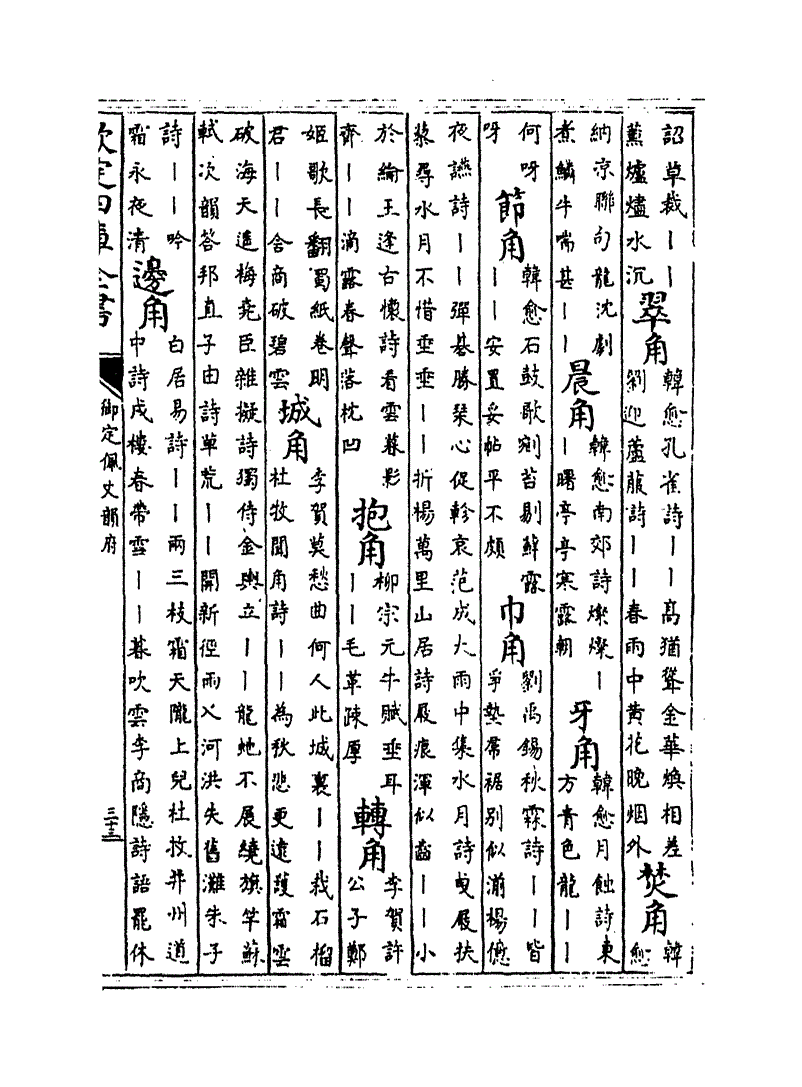 詔草裁丨丨
薰爐爐水沉
翠角
韓愈孔雀詩丨丨高猶聳金華煥相差
劉迎蘆菔詩丨丨春雨中黄花晚烟外
焚角
韓
愈
納凉聯句龍沈劇
煮鱗牛喘甚丨丨
晨角
韓愈南郊詩燦燦丨
丨曙亭亭寒露朝
牙角
韓愈月蝕詩東
方青色龍丨丨
何呀
呀
節角
韓愈石鼓歌剜苔剔蘚露
丨丨安置妥帖平不頗
巾角
劉禹錫秋霖詩丨丨皆
爭墊席裾別似湔楊億
夜讌詩丨丨彈棊勝琴心促軫哀范成大雨中集水月詩曳屐扶
藜尋水月不惜垂垂丨丨折楊萬里山居詩屐痕渾似齒丨丨小
於綸王逢古懷詩看雲暮影
齊丨丨滴露春聲落枕凹
抱角
柳宗元牛賦垂耳
丨丨毛革疎厚
轉角
李賀許
公子鄭
姬歌長翻蜀紙卷明
君丨丨含商破碧雲
城角
李賀莫愁曲何人此城裏丨丨栽石榴
杜牧聞角詩丨丨為秋悲更遠護霜雲
破海天遥梅堯臣雜擬詩獨侍金輿立丨丨龍虵不展繞旗竿蘇
軾次韻答邦直子由詩草荒丨丨開新徑雨入河洪失舊灘朱子
詩丨丨吟
霜永夜清
邊角
白居易詩丨丨兩三枝霜天隴上兒杜牧并州道
中詩戍樓春帶雪丨丨暮吹雲李商隱詩語罷休
欽定四庫全書
御定佩文韻府
三十三